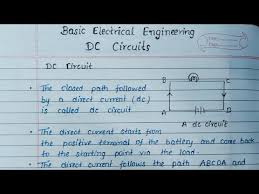 Basic Electrical Engineering
DC Circuits
DC Circuit
• The closed path followed
by a direct current (dc)
is called dc circuit
B
C
A
D
A dc circuit
• The direct current starts from
the positive terminal of the battery and come back
to the starting point via the load.
• The direct current follows the path ABCDA and